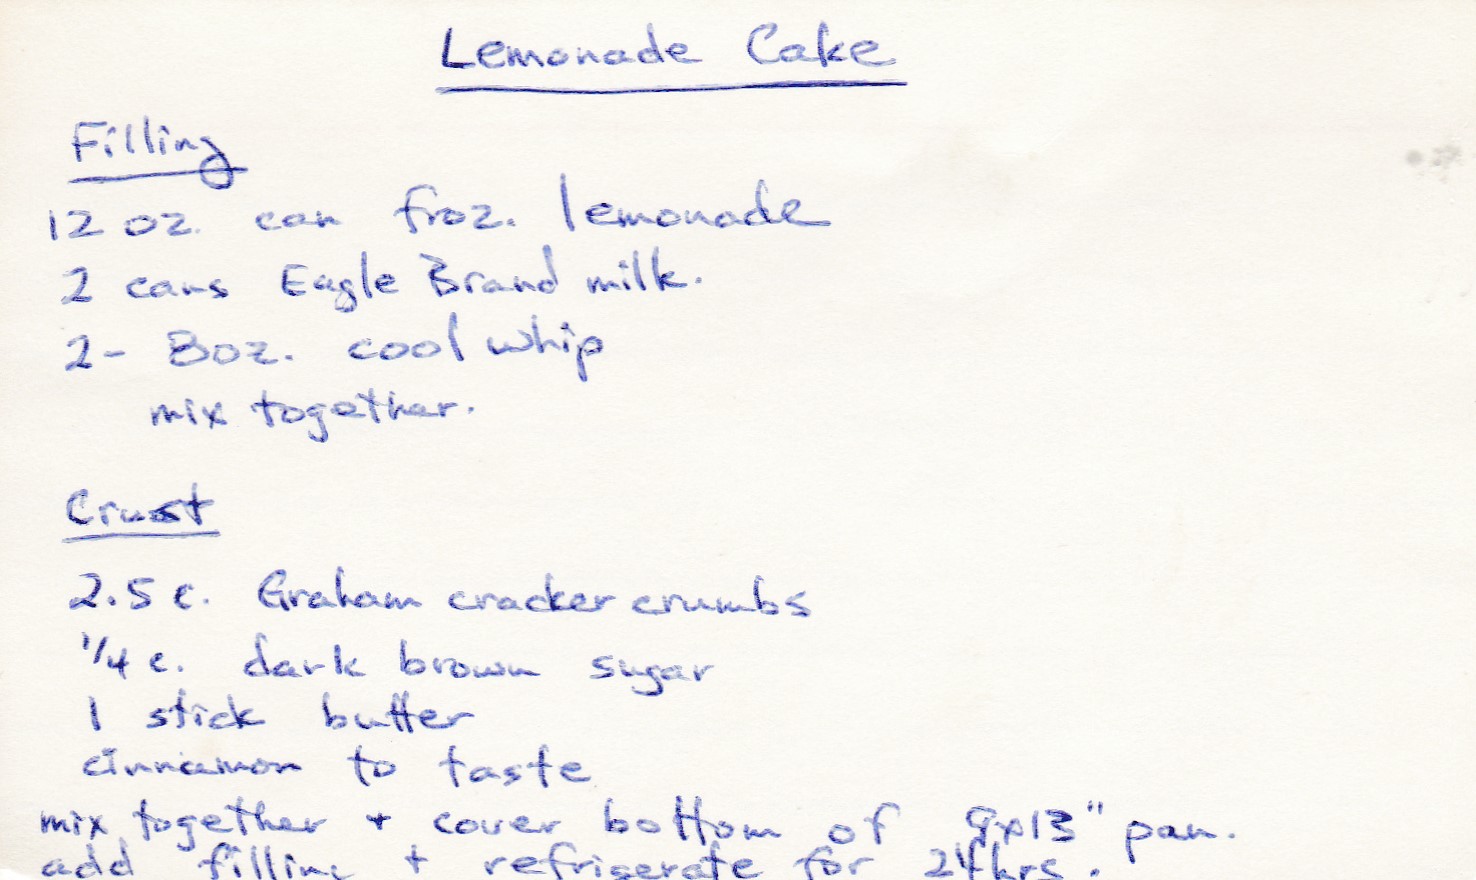 Lemonade Cake
Filling
12 oz. can froz. lemonade
2 cans Eagle Brand milk.
2- 8oz. cool whip
mix together.
Crust
2.5 c. Graham cracker crumbs
1/4 c. dark brown sugar
1 stick butter
cinnamon to taste
mix together + cover bottom of 9x13" pan.
add filling + refrigerate for 24hrs.